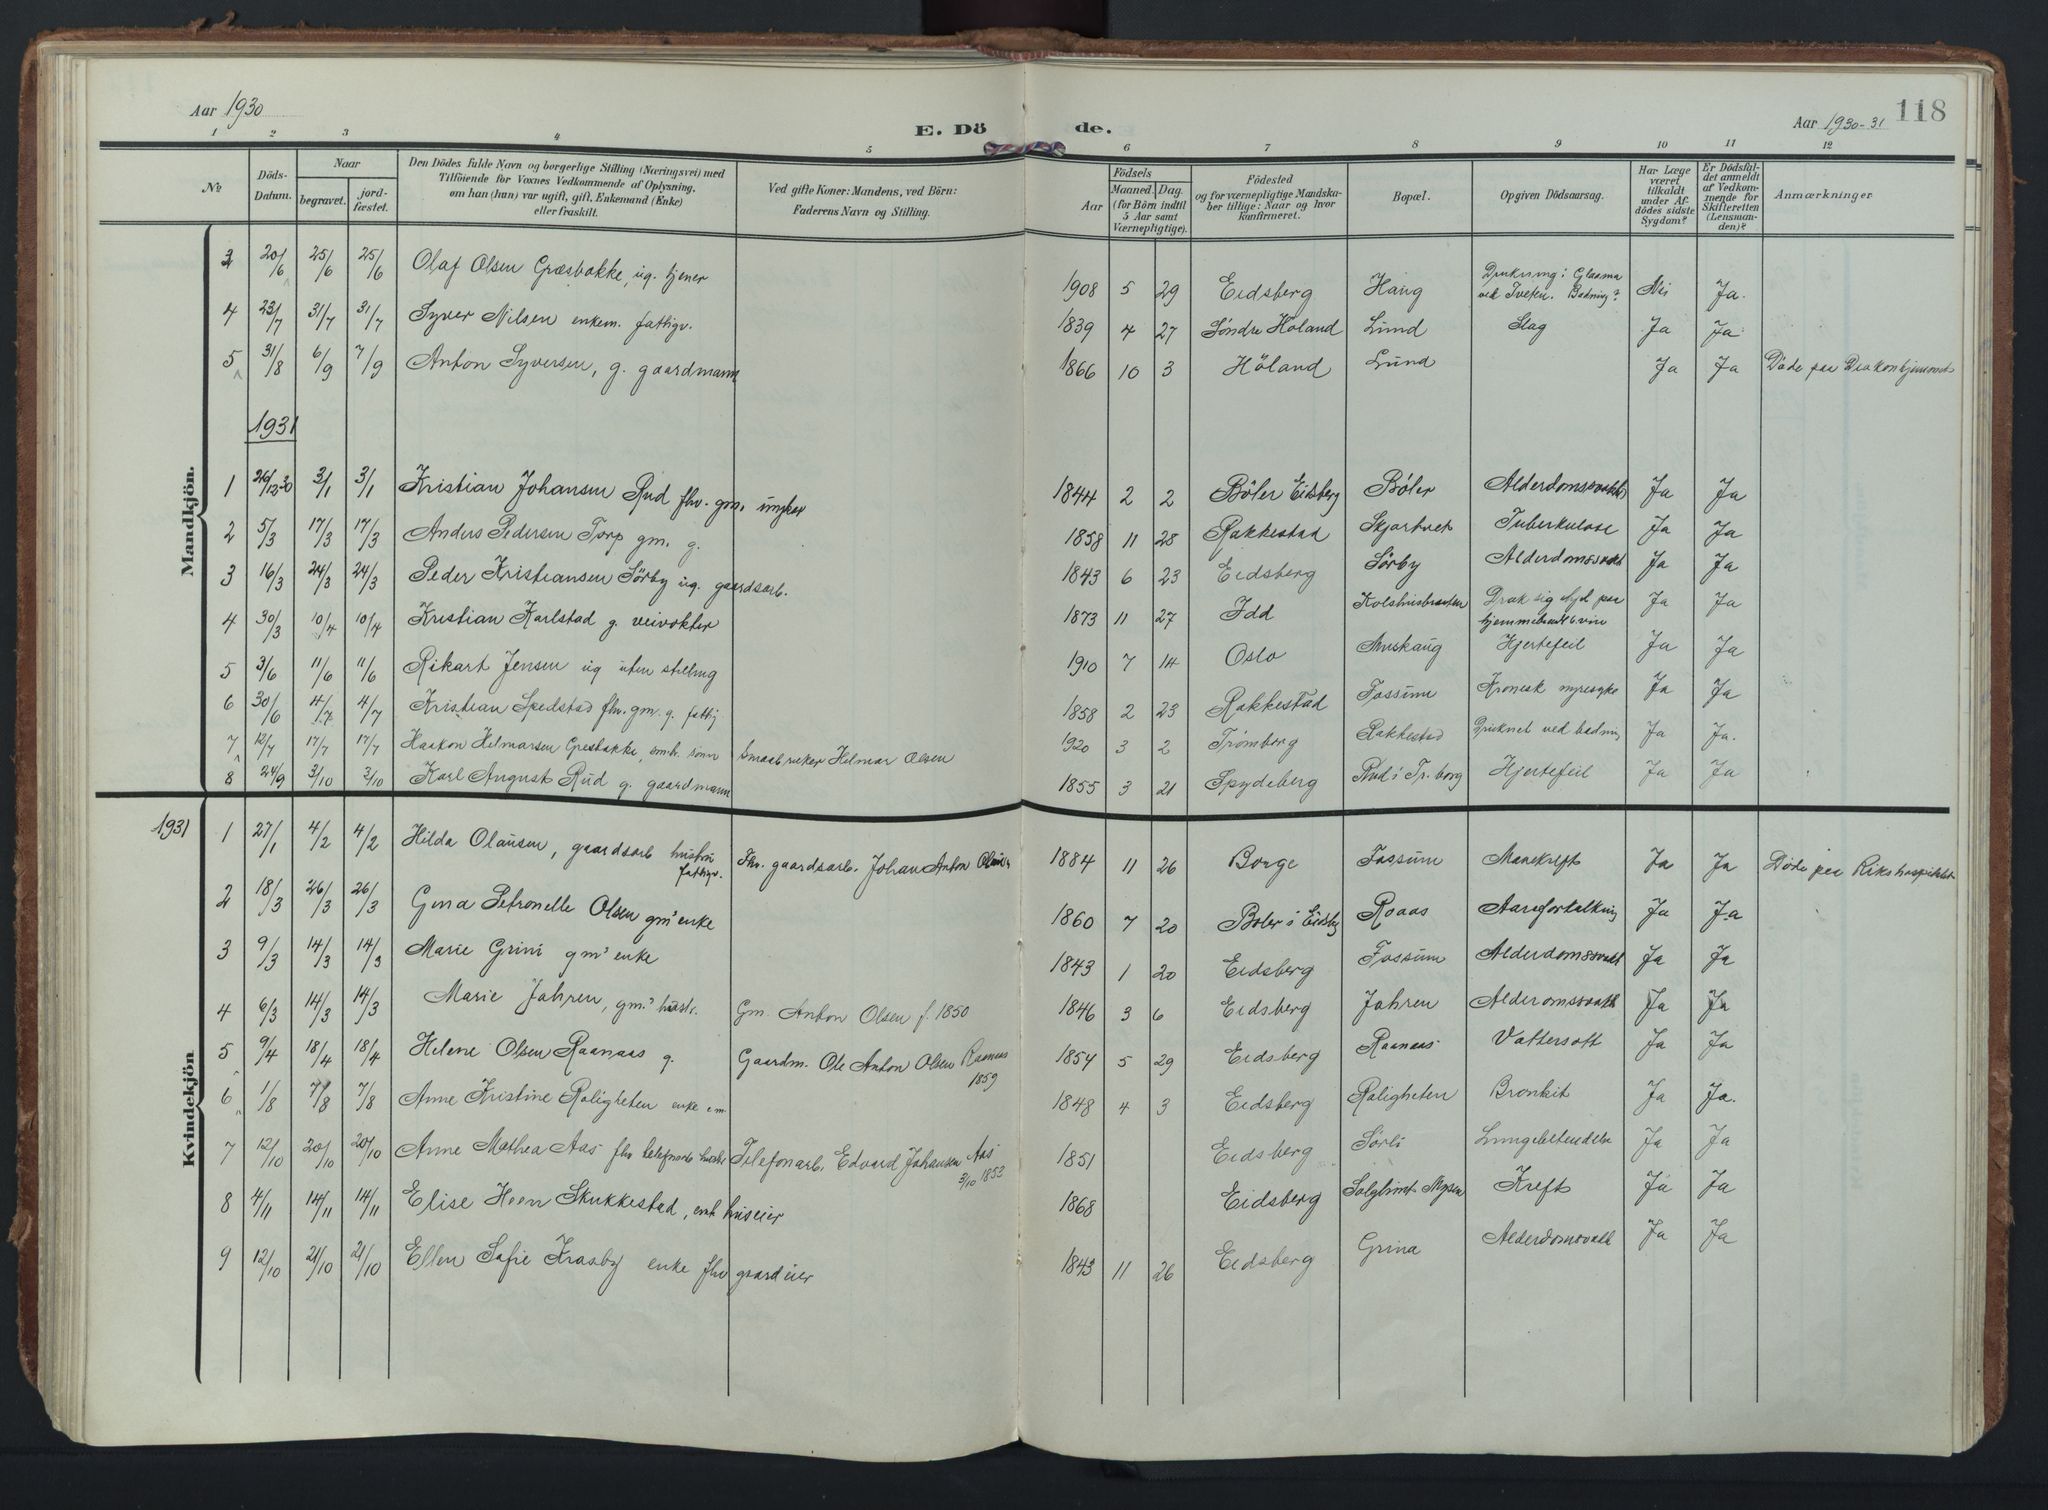 Aar 1930
E. Dö de.
Aar 1930-31
118
1 2 3 4 5 6 7 8 9 10 11 12
№
Døds-Datum.
Naar
begravet.
jord-fæstet.
Den Dödes fulde Navn og borgerlige Stilling (Næringsvei) med
Tilföiende for Voxnes Vedkommende af Oplysning,
om han (hun) var ugift, gift, Enkemand (Enke)
eller fraskilt.
Ved gifte Koner: Mandens, ved Börn:
Faderens Navn og Stilling.
Aar
Födsels
Maaned. Dag.
(for Börn indtil
5 Aar samt
Værnepligtige).
Födested
og for værnepligtige Mandska-
ber tillige: Naar og hvor
konfirmeret.
Bopæl.
Opgiven Dödsaarsag.
Har Læge
været
tilkaldt
under Af-
dödes sidste
Sygdom?
Er Dödsfal-
det anmeldt
af Vedkom-
mende for
Skifteretten
(Lensman-
den)?
Anmærkninger
Mandkjön.
3 20/6 25/6 25/6 Olaf Olsen Græsbakke, ug. tjener 1908 5 29 Eidsberg Haug Drukning i Glaama ved Tveten. Badning? Nei Ja.
4 23/7 31/7 31/7 Syver Nilsen enkem. fattigv. 1839 4 27 Søndre Høland Lund Slag Ja Ja
5 31/8 6/9 7/9 Anton Syversen, g. gaardmann 1866 10 3 Höland Lund Ja Ja Døde paa Diakonhjemmet
1931
1 26/12 30 3/1 3/1 Kristian Johansen Rud fhv. gm. ungkar 1844 2 2 Böler Eidsberg Bøler Alderdomssvakhet Ja Ja
2 5/3 17/3 17/3 Anders Pedersen Torp gm. g. 1858 11 28 Rakkestad Skjortvet Tuberkulose Ja Ja
3 16/3 24/3 24/3 Peder Kristiansen Sörby ug. gaardsarb. 1843 6 23 Eidsberg Sørby Alderdomssvakt Ja Ja
4 30/3 10/4 10/4 Kristian Karlstad g. veivokter 1873 11 27 Idd Kolshusbraaten Drak sig ihjel paa hjemmebrent vin Ja Ja
5 3/6 11/6 11/6 Rikart Jensen ug uten stilling 1910 7 14 Oslo Hjertefeil Ja Ja
6 30/6 4/7 4/7 Kristian Spedstad fhv. gm. g. fattig 1858 2 23 Rakkestad Fossum Kronisk nyresyke Ja Ja
7 12/7 17/7 17/7 Haakon Helmarsen Gresbakke, smbr. sønn Smaabruker Helmar Olsen 1920 3 2 Trømborg Rakkestad Druknet ved badning Ja Ja.
8 24/9 3/10 3/10 Karl August Rud g. gaardmann 1855 3 21 Spydeberg Rud i Tr.borg Hjertefeil Ja Ja
Kvindekjön
1931
1 27/1 4/2 4/2 Hilda Olausen, gaardsarb hustru fattigv. Fhv. gaardsarb. Johan Anton Olausen 1884 11 26 Borge Fossum Mavekreft Ja Ja Døde paa Rikshospitalet
2 18/3 26/3 26/3 Gina Petronelle Olsen gms enke 1860 7 20 Bøler i Eidsbg Raaas Aareforkalkning Ja Ja
3 9/3 14/3 14/3 Marie Grini gms enke 1843 1 20 Eidsberg Fossum Alderdomssvakt Ja Ja
4 6/3 14/3 14/3 Marie Jahren, gms hustr. Gm. Anton Olsen f. 1850 1846 3 6 Eidsberg Jahren Alderomssvakh Ja Ja
5 9/4 18/4 18/4 Helene Olsen Raanaas g. Gaardm. Ole Anton Olsen Raanaas 1859 1854 5 29 Eidsberg Raanaas Vattersott Ja Ja
6 1/8 7/8 7/8 Anne Kristine Roligheten enke e.m. 1848 4 3 Eidsberg Roligheten Bronkit Ja Ja.
7 12/10 20/10 20/10 Anne Mathea Aas fhv telefonarb hustr Telefonarb. Edvard Johansen Aas 3/10 1853 1851 Eidsberg Sørli Lungebetendelse Ja Ja
8 4/11 14/11 14/11 Elise Heen Skukkestad, enk huseier 1868 Eidsberg Solglimt Mysen Kreft Ja Ja
9 12/10 21/10 21/10 Ellen Sofie Krosby enke fhv gaardeier 1843 11 26 Eidsberg Grina Alderdomssvakh Ja Ja